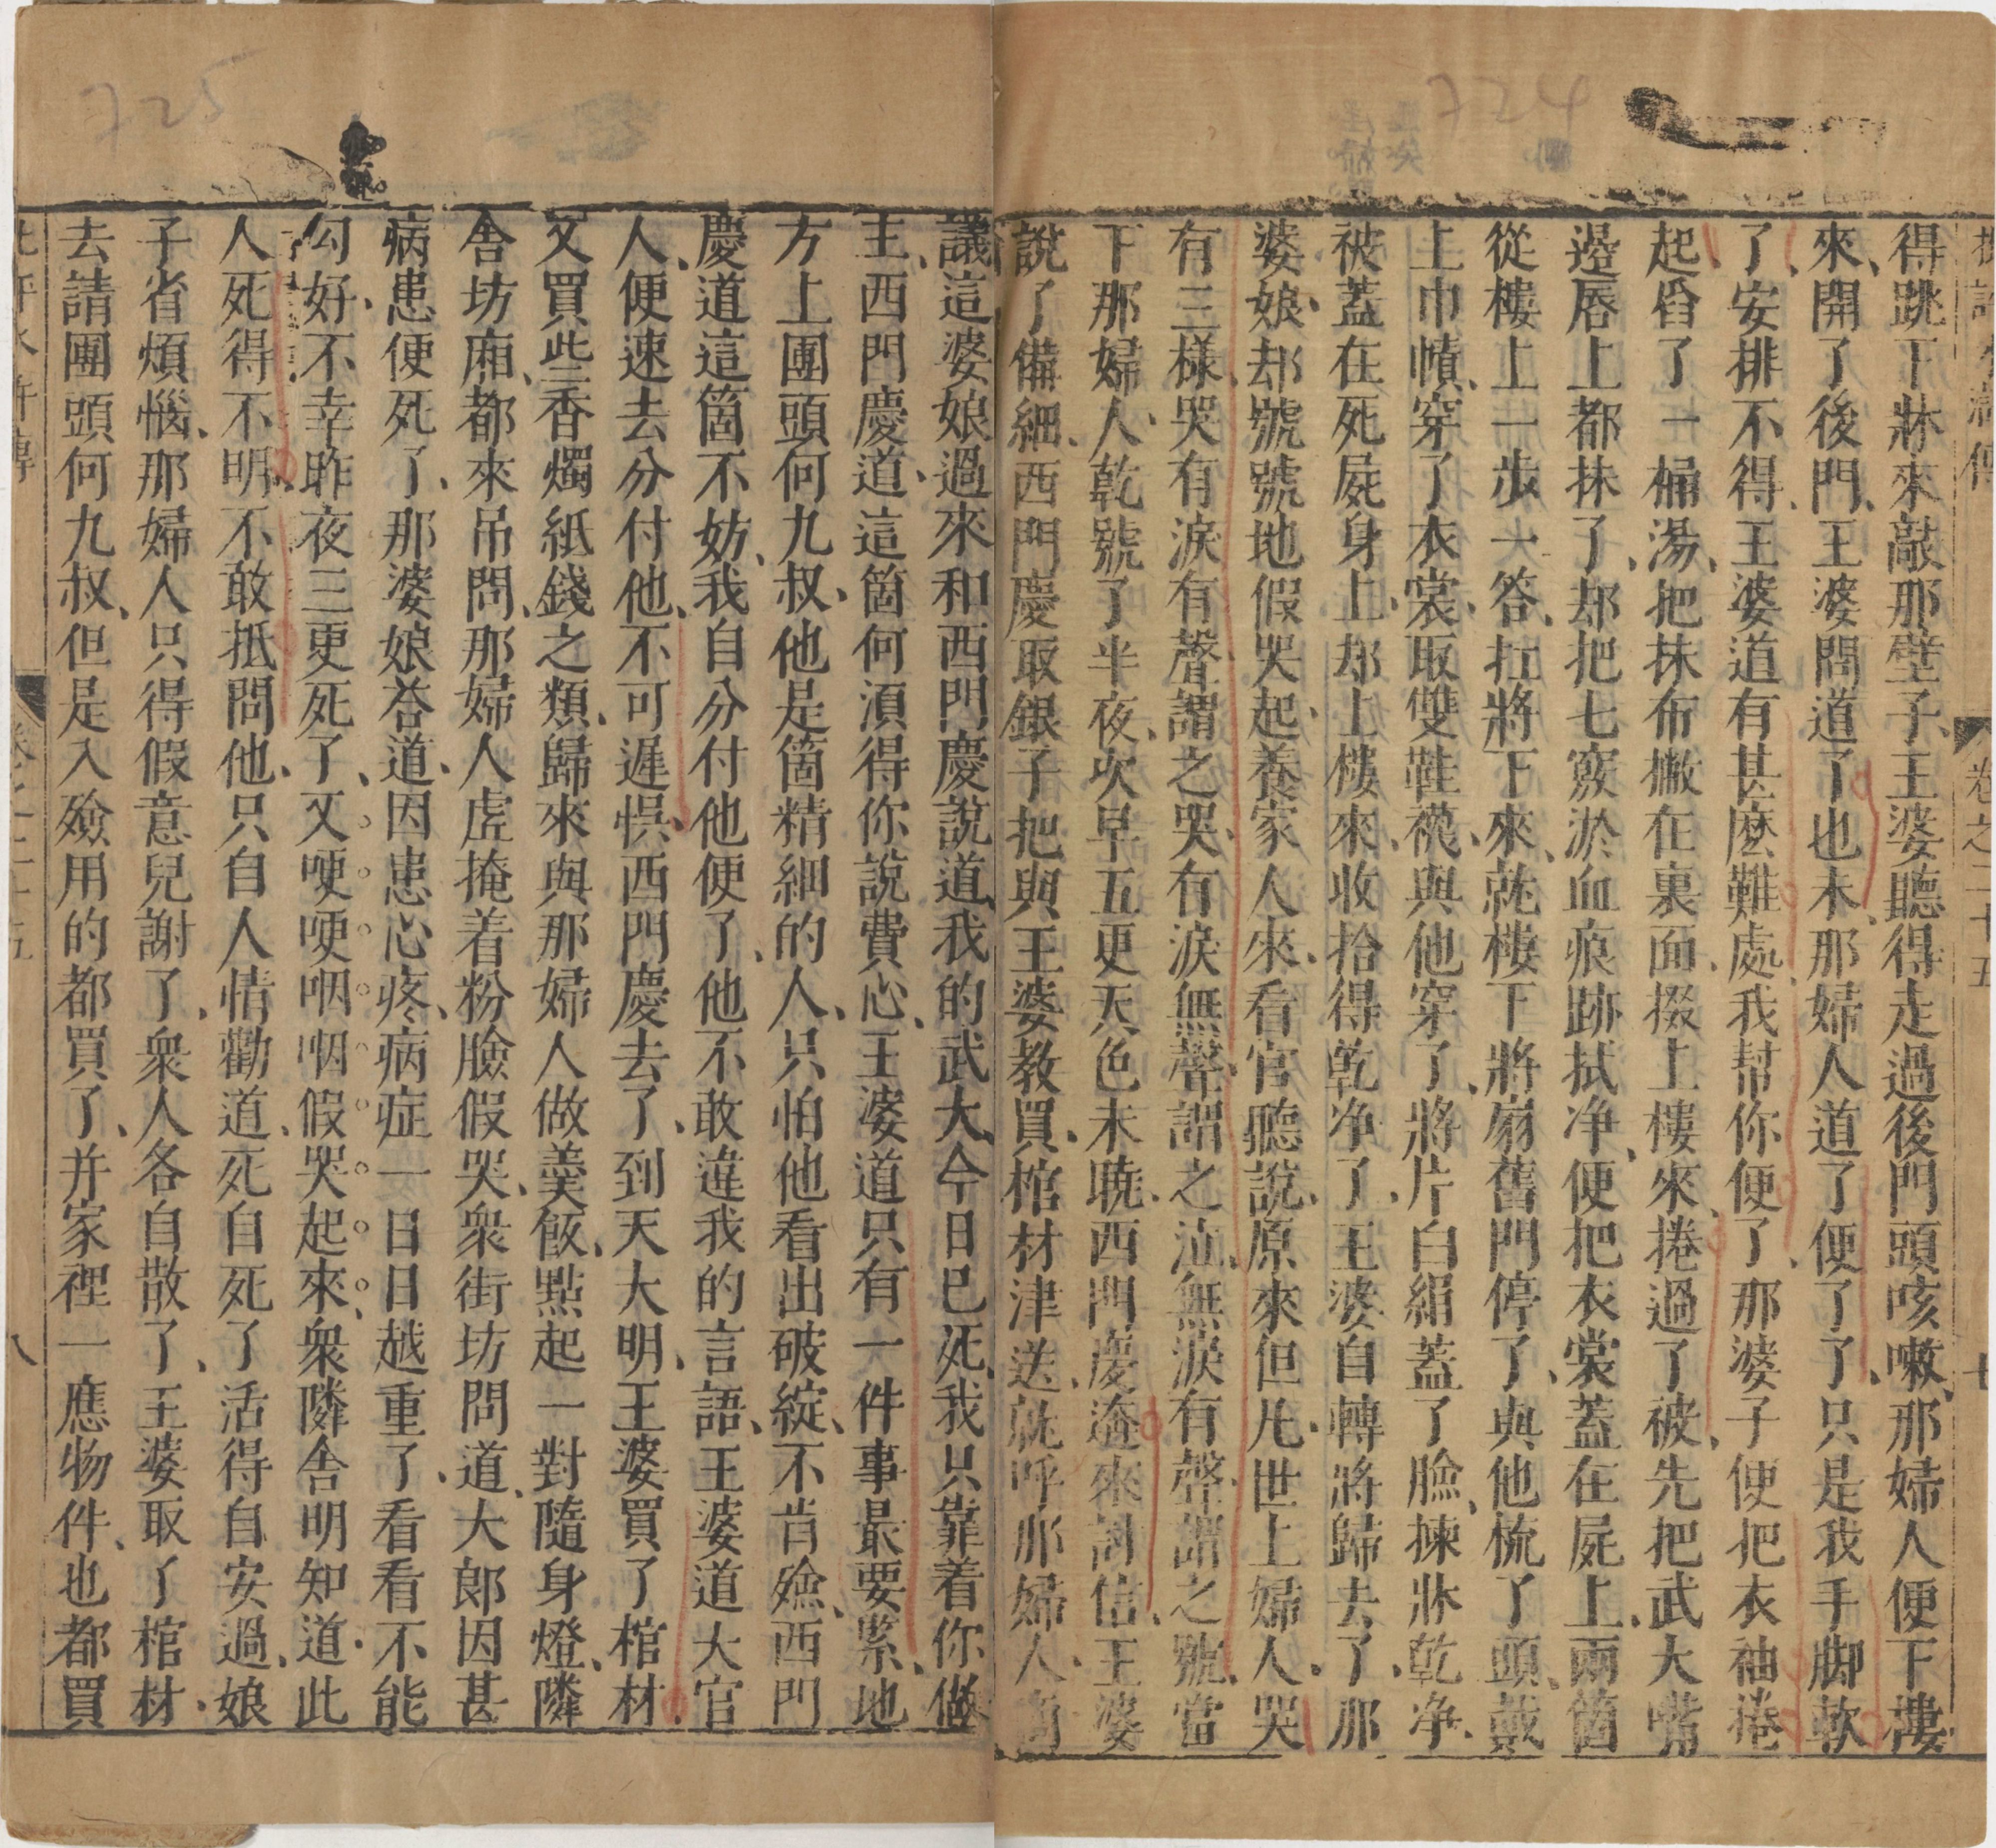 得跳下牀來敲那壁子王婆聽得走過後門頭咳嗽那婦人便下樓
來開了後門王婆問道了也未那婦人道了便了了只是我手脚軟
了安排不得王婆道有甚麽難處我幫你便了那婆子便把衣袖捲
起舀了一桶湯把抹布撇在裏面掇上樓來捲過了被先把武大嘴
邊唇上都抹了却把七竅淤血痕跡拭净便把衣裳蓋在屍上兩箇
從樓上一步一答扛將下來就樓下將扇舊門停了與他梳了頭戴
上巾幘穿了衣裳取雙鞋襪與他穿了將片白絹蓋了臉揀牀乾净
被蓋在死屍身上却上樓來收拾得乾净了王婆自轉將歸去了那
婆娘却號號地假哭起養家人來看官聽說原來但凡世上婦人哭
有三樣哭有淚有聲謂之哭有淚無聲謂之泣無淚有聲謂之號當
下那婦人乾號了半夜次早五更天色未曉西門慶逩來討信王婆
說了備細西門慶取銀子把與王婆教買棺材津送就呼那婦人商
議這婆娘過來和西門慶說道我的武大今日已死我只靠着你做
主西門慶道這箇何湏得你說費心王婆道只有一件事最要緊地
方上團頭何九叔他是箇精細的人只怕他看出破綻不肯殮西門
慶道這箇不妨我自分付他便了他不敢違我的言語王婆道大官
人便速去分付他不可遲悞西門慶去了到天大明王婆買了棺材
又買些香燭紙錢之類歸來與那婦人做羹飯點起一對隨身燈隣
舍坊廂都來吊問那婦人虛掩着粉臉假哭衆街坊問道大郎因甚
病患便死了那婆娘荅道因患心疼病症一日日越重了看看不能
勾好不幸昨夜三更死了又哽哽咽咽假哭起來衆隣舍明知道此
人死得不明不敢抵問他只自人情勸道死自死了活得自安過娘
子省煩惱那婦人只得假意兒謝了衆人各自散了王婆取了棺材
去請團頭何九叔但是入殮用的都買了并家裡一應物件也都買
卷之二十五
七
八